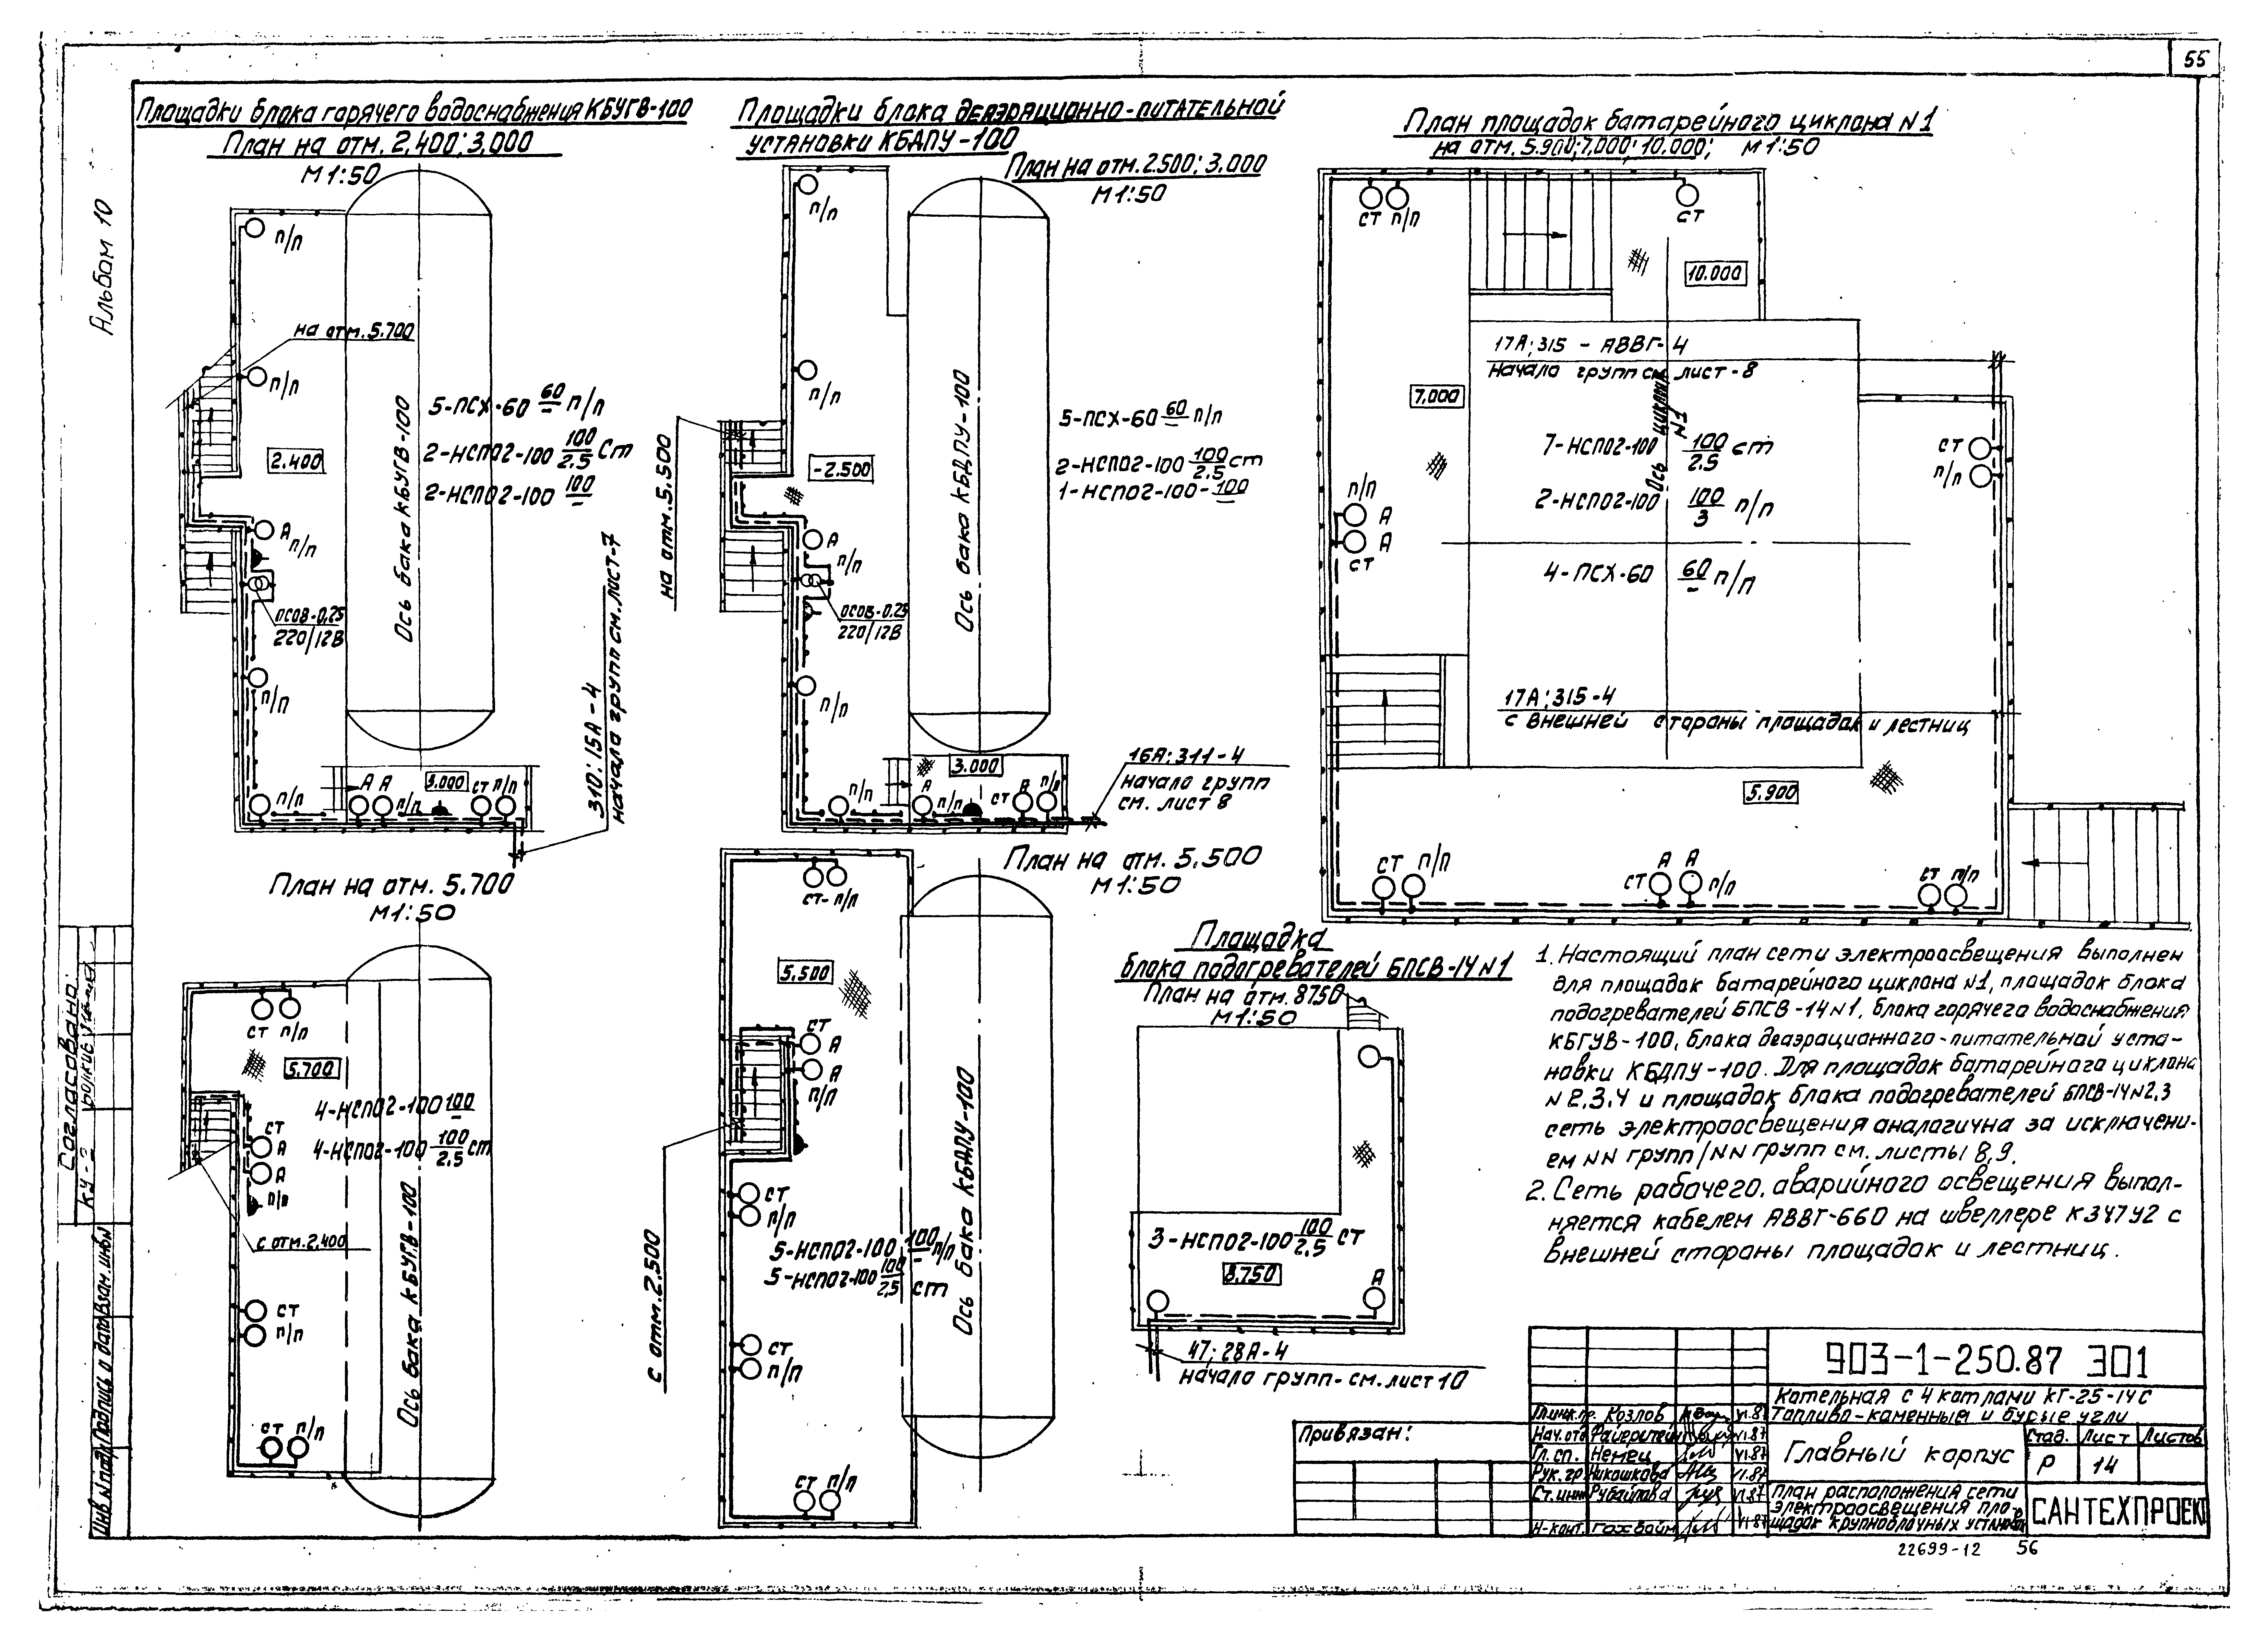 55
Альбом 10
Площадки блока горячего водоснабжения КБУГВ-100
План на отм. 2,400; 3,000
М 1:50
п/п
на отм. 5.700
п/п
2.400
5-ПСХ-60 60/– п/п
2-НСП02-100 100/2.5 Ст
2-НСП02-100 100/–
Ось бака КБУГВ-100
А п/п
ПСОВ-0,25
220/12В
п/п
п/п
А А
п/п
3.000
ст п/п
310; 15А-4
начала групп см. лист-7
Площадки блока деаэрационно-питательной
установки КБДПУ-100
План на отм. 2.500; 3.000
М 1:50
п/п
п/п
на отм. 5.500
-2.500
5-ПСХ-60 60/– п/п
2-НСП02-100 100/2.5 ст
1-НСП02-100- 100/–
Ось бака КБДПУ-100
А
п/п
ОСОВ-0,25
220/12В
п/п
п/п
А
п/п
3.000
ст
п/п
16А; 311-4
начало групп
см. лист 8
План площадок батарейного циклона N1
на отм. 5.900; 7,000; 10.000; М 1:50
ст п/п
ст
10.000
17А; 315 - АВВГ-4
Начало групп см. лист-8
7,000
Ось циклона N1
7-НСП02-100 100/2.5 ст
2-НСП02-100 100/3 п/п
4-ПСХ-60 60/– п/п
ст
п/п
п/п
А
А
ст
17А; 315-4
с внешней стороны площадок и лестниц
5.900
ст п/п
А А
ст п/п
ст п/п
План на отм. 5.700
М 1:50
ст п/п
5.700
4-НСП02-100 100/–
4-НСП02-100 100/2.5 ст
ст
А
А
п/п
с отм. 2,400
Ось бака КБУГВ-100
ст
п/п
ст п/п
План на отм. 5.500
М 1:50
ст- п/п
5.500
ст
А
А
п/п
ст
п/п
5-НСП02-100 100/– п/п
5-НСП02-100 100/2,5 ст
Ось бака КБДПУ-100
с отм. 2.500
ст
п/п
ст п/п
Площадка
блока подогревателей БПСВ-14 N1
План на отм. 8750
М 1:50
3-НСП02-100 100/2.5 ст
8.750
А
47; 28А-4
начало групп- см. лист 10
1. Настоящий план сети электроосвещения выполнен
для площадок батарейного циклона N1, площадок блока
подогревателей БПСВ-14 N1, блока горячего водоснабжения
КБГУВ-100, блока деаэрационного-питательной уста-
новки КБДПУ-100. Для площадок батарейного циклона
N 2,3,4 и площадок блока подогревателей БПСВ-14 N 2,3
сеть электроосвещения аналогична за исключени-
ем NN групп/NN групп см. листы 8,9.
2. Сеть рабочего, аварийного освещения выпол-
няется кабелем АВВГ-660 на швеллере К347У2 с
внешней стороны площадок и лестниц.
903-1-250.87 ЭО1
Котельная с 4 котлами КГ-25-14с
Топливо-каменные и бурые угли
Главный корпус
Стад. Лист Листов
Р 14
План расположения сети
электроосвещения пло-
щадок крупноблочных установок
САНТЕХПРОЕКТ
Гл.инж.пр. Козлов VI.87
Нач.отд. VI.87
Гл.сп. Немец VI.87
Рук.гр. Никошкова VI.87
Ст.инж. VI.87
Н-конт. VI.87
Привязан:
Согласовано:
КУ-2
Инв N подл. Подпись и дата Взам. инв N
22699-12 56